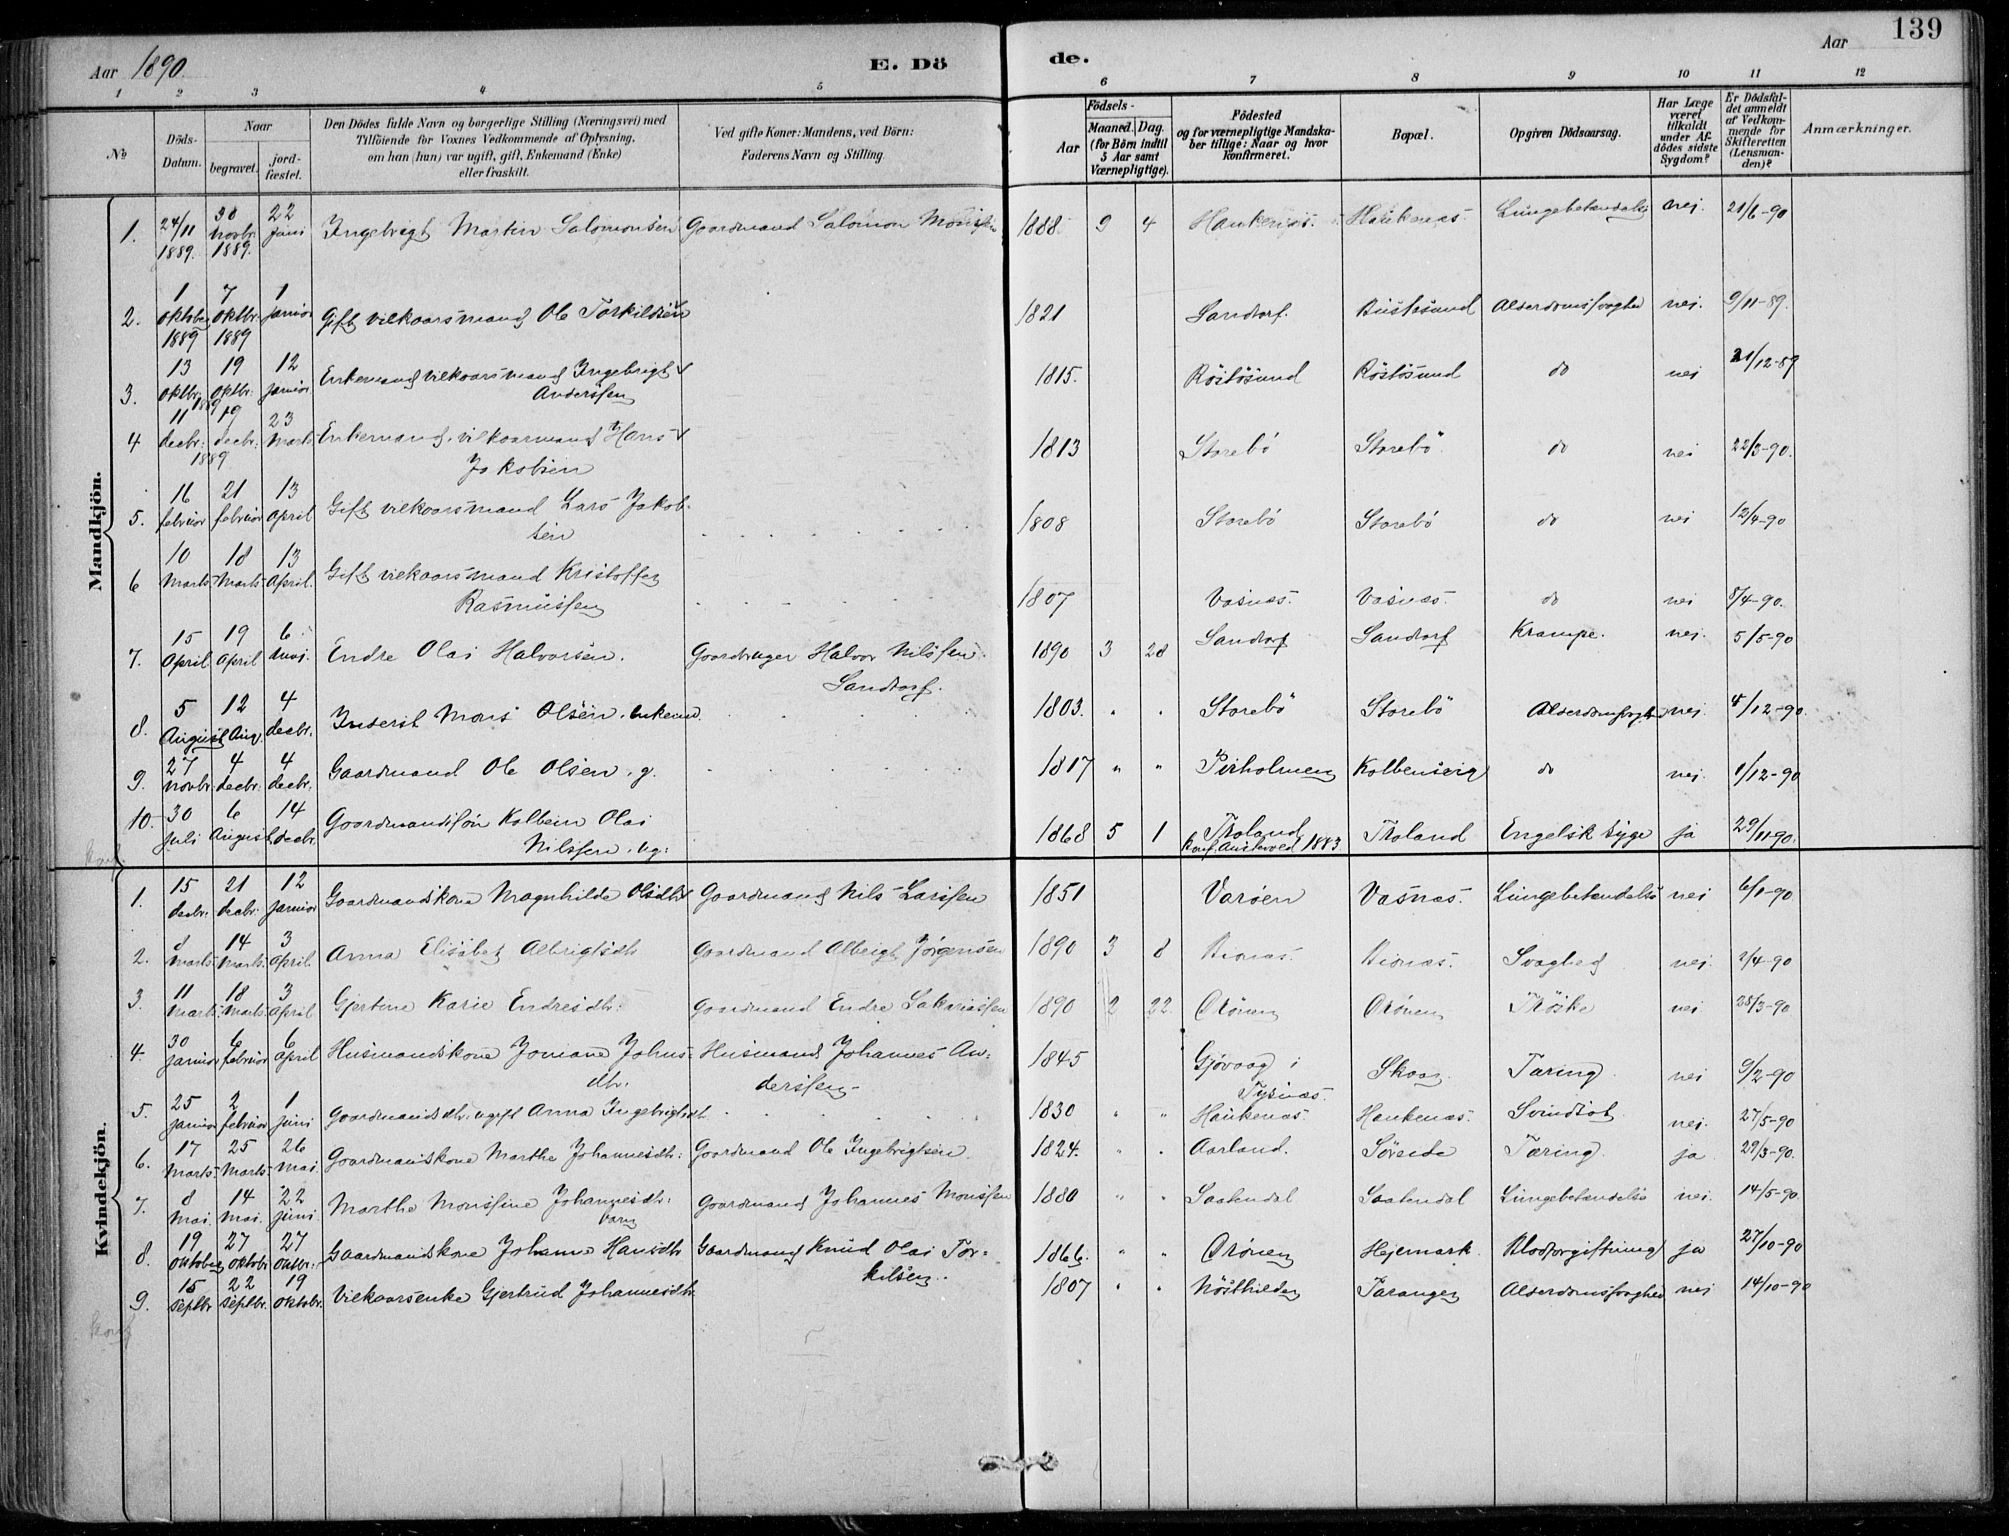 Aar 1890.
E. Dö
de.
Aar
139
1 2 3 4 5 6 7 8 9 10 11 12
No
Döds-Datum.
Naar
begravet.
jord-fæstet.
Den Dödes fulde Navn og borgerlige Stilling (Næringsvei) med
Tilföiende for Voxnes Vedkommende af Oplysning,
om han (hun) var ugift, gift, Enkemand (Enke)
eller fraskilt.
Ved gifte Koner: Mandens, ved Börn:
Faderens Navn og Stilling.
Födsels-
Aar
Maaned. Dag.
(for Börn indtil
5 Aar samt
Værnepligtige).
Födested
og for værnepligtige Mandska-
ber tillige: Naar og hvor
konfirmeret.
Bopæl.
Opgiven Dödsaarsag.
Har Læge
været
tilkaldt
under Af-
dödes sidste
Sygdom?
Er Dödsfal-
det anmeldt
af Vedkom-
mende for
Skifteretten
(Lensman-
den)?
Anmærkninger.
Mandkjön.
1. 24/11 1889. 30 Novbr. 1889. 22 juni Ingebrigt Martin Salomonsen Gaardmand Salomon Monsen 1888. 9 4 Haukenæs. Haukenæs. Lungebetændelse nei. 21/6-90
2. 1 oktober 1889 7 oktbr. 1889 1 januar Gift vilkaarsmand Ole Torkildsen 1821 Sandtorf. Alderdomssvaghed nei. 9/11-89.
3. 13 oktbr. 19 oktbr. 1889 12 januar Enkemand vilkaarsmand Ingebrigt
Anderssen 1815. Röstösund Röstösund do nei 21/12-89
4 11 decbr. 19 decbr. 1889 23 Marts Enkemand. vilkaarmand Hans
Jakobsen 1813 Storebö Storebö do nei 22/3-90.
5. 16 februar 21 februar 13 April Gift vilkaarsmand Lars Jakob-
sen 1808 Storebö Storebö do nei 12/4-90
6 10 Marts 18 Marts 13 April. Gift vilkaarsmand Kristoffer
Rasmussen 1807 Vasnæs. Vasnæs. do nei 8/4-90.
7. 15 April 19 April 6 Mai. Endre Olai Halvorsen. Gaardbruger Halvor Nilssen.
Sandtorf. 1890 3 28 Sandtorf Sandtorf Krampe. nei. 5/5-90
8. 5 August 12 Aug. 4 decbr. Inderst Mons Olsen. enkemd. 1803. " " Storebö Storebö Alderdomssvaghed nei. 4/12-90.
9. 27 Novbr. 4 decbr. 4 decbr. Gaardmand Ole Olsen. g. 1817 " " Pirholmen Kolbensvig do nei. 1/12-90
10. 30 Juli 6 August 14 decbr. Gaardmandssön Kolbein Olai
Nilssen. ug. 1868 5 1 Troland
Konf. Austevold 1883 Troland Engelsk Syge ja 29/11-90.
Kvindekjön.
1. 15 decbr. 21 decbr. 12 januar Gaardmandskone Magnhilde Olsdtr Gaardmand Nils Larssen 1851 Varöen Vasnæs. Lungebetændelse nei 6/1-90
2. 8 Marts. 14 Marts. 3 April. Anna Elisabet Albrigtsdtr Gaardmand Albrigt Jörgensen 1890 3 8 Svaghed nei. 2/4-90
3. 11 Marts. 18 Marts. 3 April Gjertine Karie Endresdtr. Gaardmand Endre Sakariassen 1890 2 22. Dröner Dröner Tröske nei 28/3-90
4. 30 januar 6 februar 6 April Husmandskone Joniane Johns-
dtr. Husmand Johannes An-
derssen 1845 Gjövaag i
Tysnæs. Skaar Tæring nei 9/2-90
5. 25 januar 2 februar 1 juni Gaardmandsdtr. ugift Anna Ingebrigtsdtr. 1830 " " Haukenæs. Haukenæs. Svindsot nei. 27/5-90
6. 17 Marts 25 Marts 26 Mai. Gaardmandskone Marthe Johannesdtr. Gaardmand Ole Ingebrigtsen 1824. " . Aarland. Söreide Tæring. ja 29/3-90.
7. 8 Mai. 14 Mai. 22 juni Marthe Monsine Johannesdtr.
barn Gaardmand Johannes Monssen 1880 " " Saatendal Saatendal Lungebetændelse nei. 14/5-90
8. 19 oktober 27 oktobr 27 oktbr. Gaardmandskone Johanne Hansdtr Gaardmand Knud Olai Tor-
kilsen. 1866. " " Dröner Hejemark. Blodforgiftning ja 27/10-90
9. 15 Septbr. 22 Septbr. 19 oktobr. Vilkaarsenke Gjertrud Johannesdtr 1807 " . Nösthilden Taranger Alderdomssvaghed nei 14/10-90